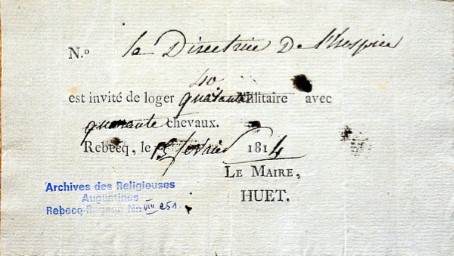 N.º la Directrice De l'hospice
40
est invité de loger quarante Militaire avec
quarante chevaux.
Rebecq, le 15 février 1814
LE MAIRE,
HUET.
Archives des Religieuses
Augustines
Rebecq-Rognon No VIII 251